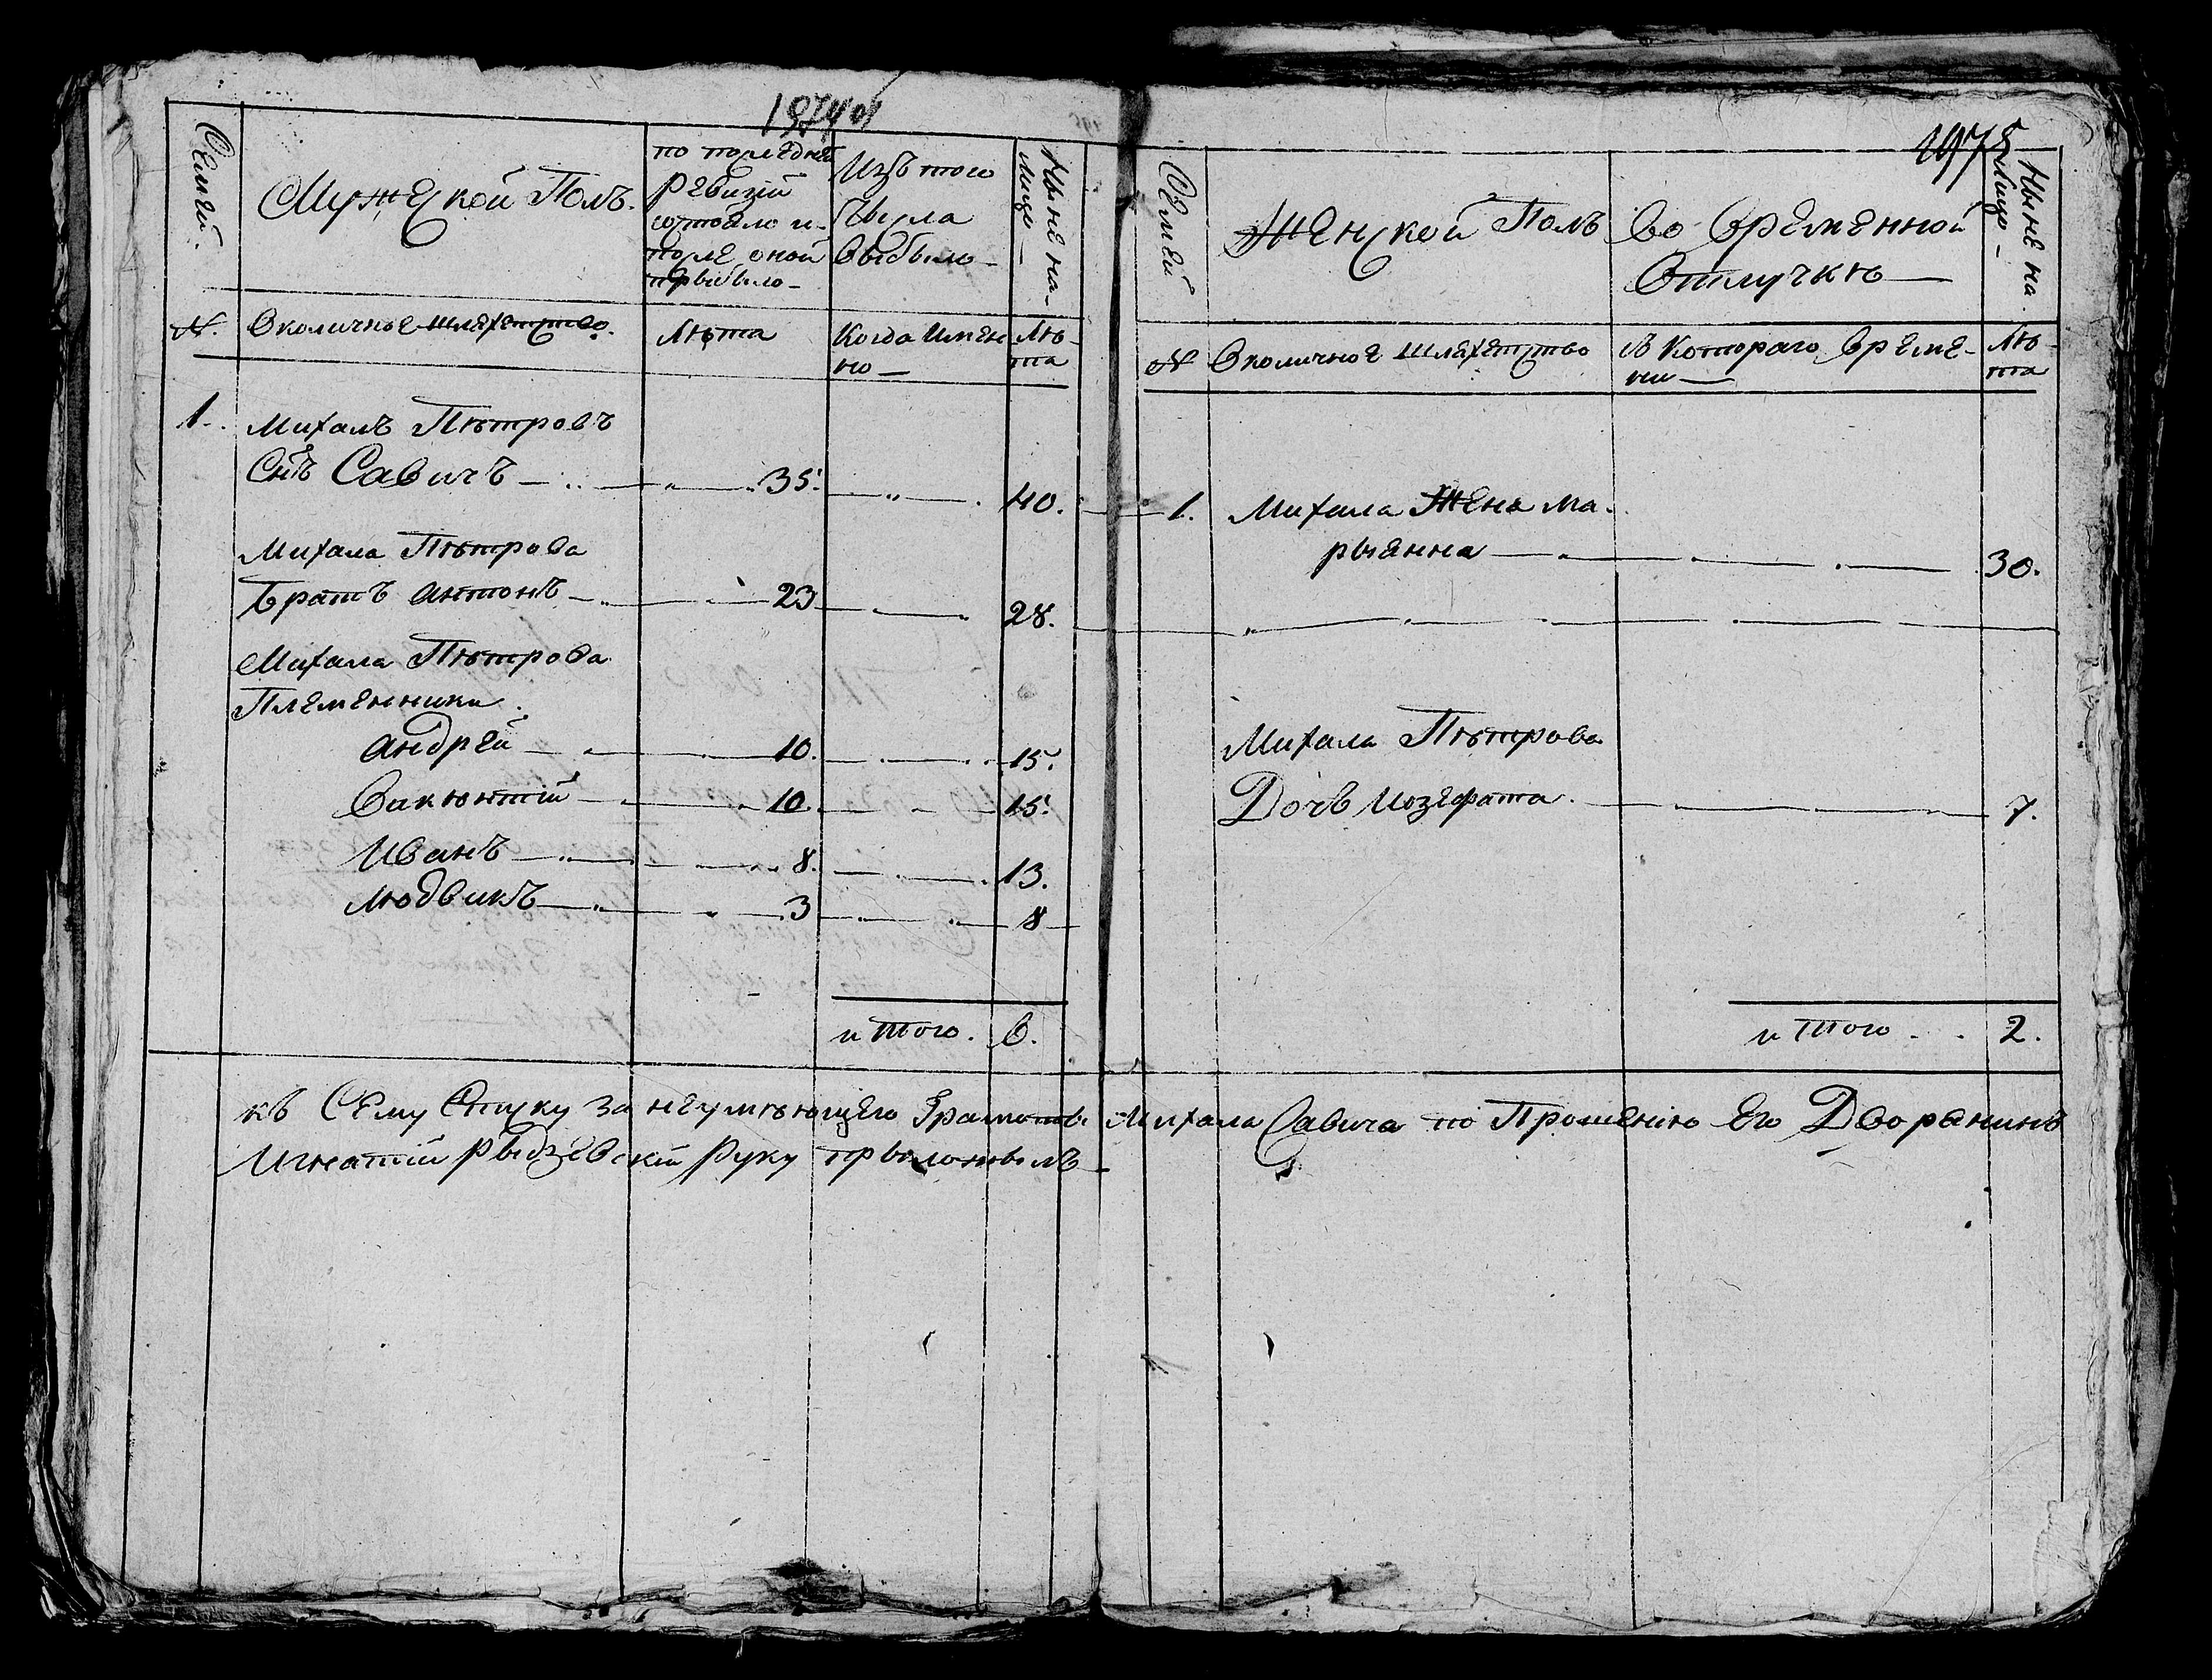 1974 об
Семей.
Мужеской Полъ.
по последней
Ревизии
состояло и
после оной
прыбыло
Изъ того
Числа
Выбыло
Ныне на-
лицо
№.
Околичное шляхетство.
Лѣта
Когда Имен
но
Лѣ-
та
1.
Михалъ Пѣтровъ
Снъ Савичъ 35. 40.
Михала Пѣтрова
Братъ Антонъ 23 28.
Михала Пѣтрова
Племенники
Андрей 10. 15.
Викѣнтій 10. 15.
Иванъ 8. 13.
Людвикъ 3 8
и Того. 6.
1975
Семей
Женской Полъ
Во Временной
Отлучкѣ
Ныне на
Лицо
№
Околичное шляхетство
съ Котораго Време-
ни
Лѣ-
та
1. Михала Жена Ма-
рыянна 30.
Михала Пѣтрова
Дочь Иозефата 7.
и Того 2.
къ Сему Списку за неумѣющего Грамотѣ Михала Савича по Прошенію Его Дворянинъ
Игнатій Рыдзевскій Руку прыложылъ